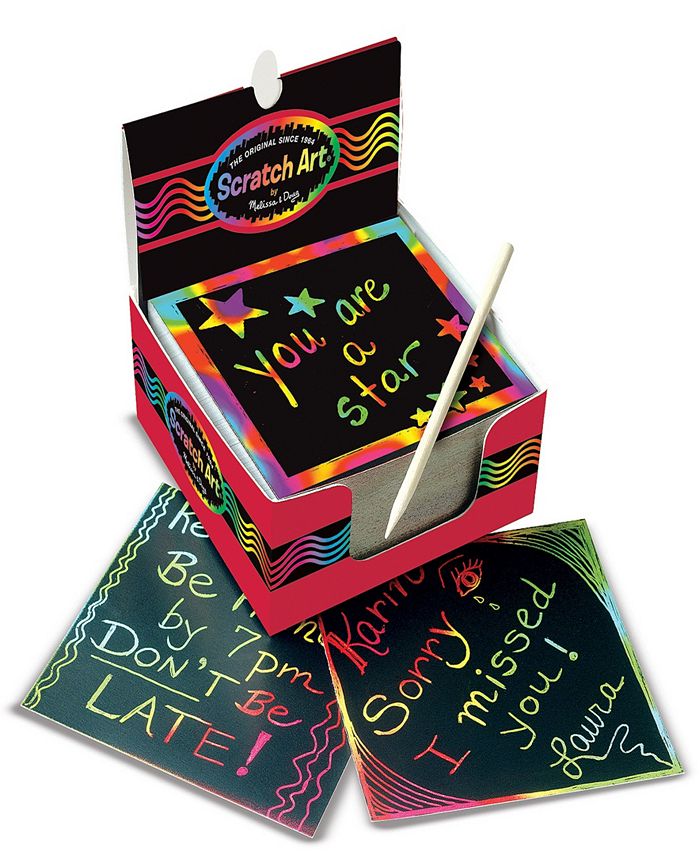 THE ORIGINAL SINCE 1964
Scratch Art®
by
Melissa & Doug
You are
a
star
Scratch Art
Be
by 7pm
DON'T Be
LATE!
Karin
Sorry
I missed
you!
Laura